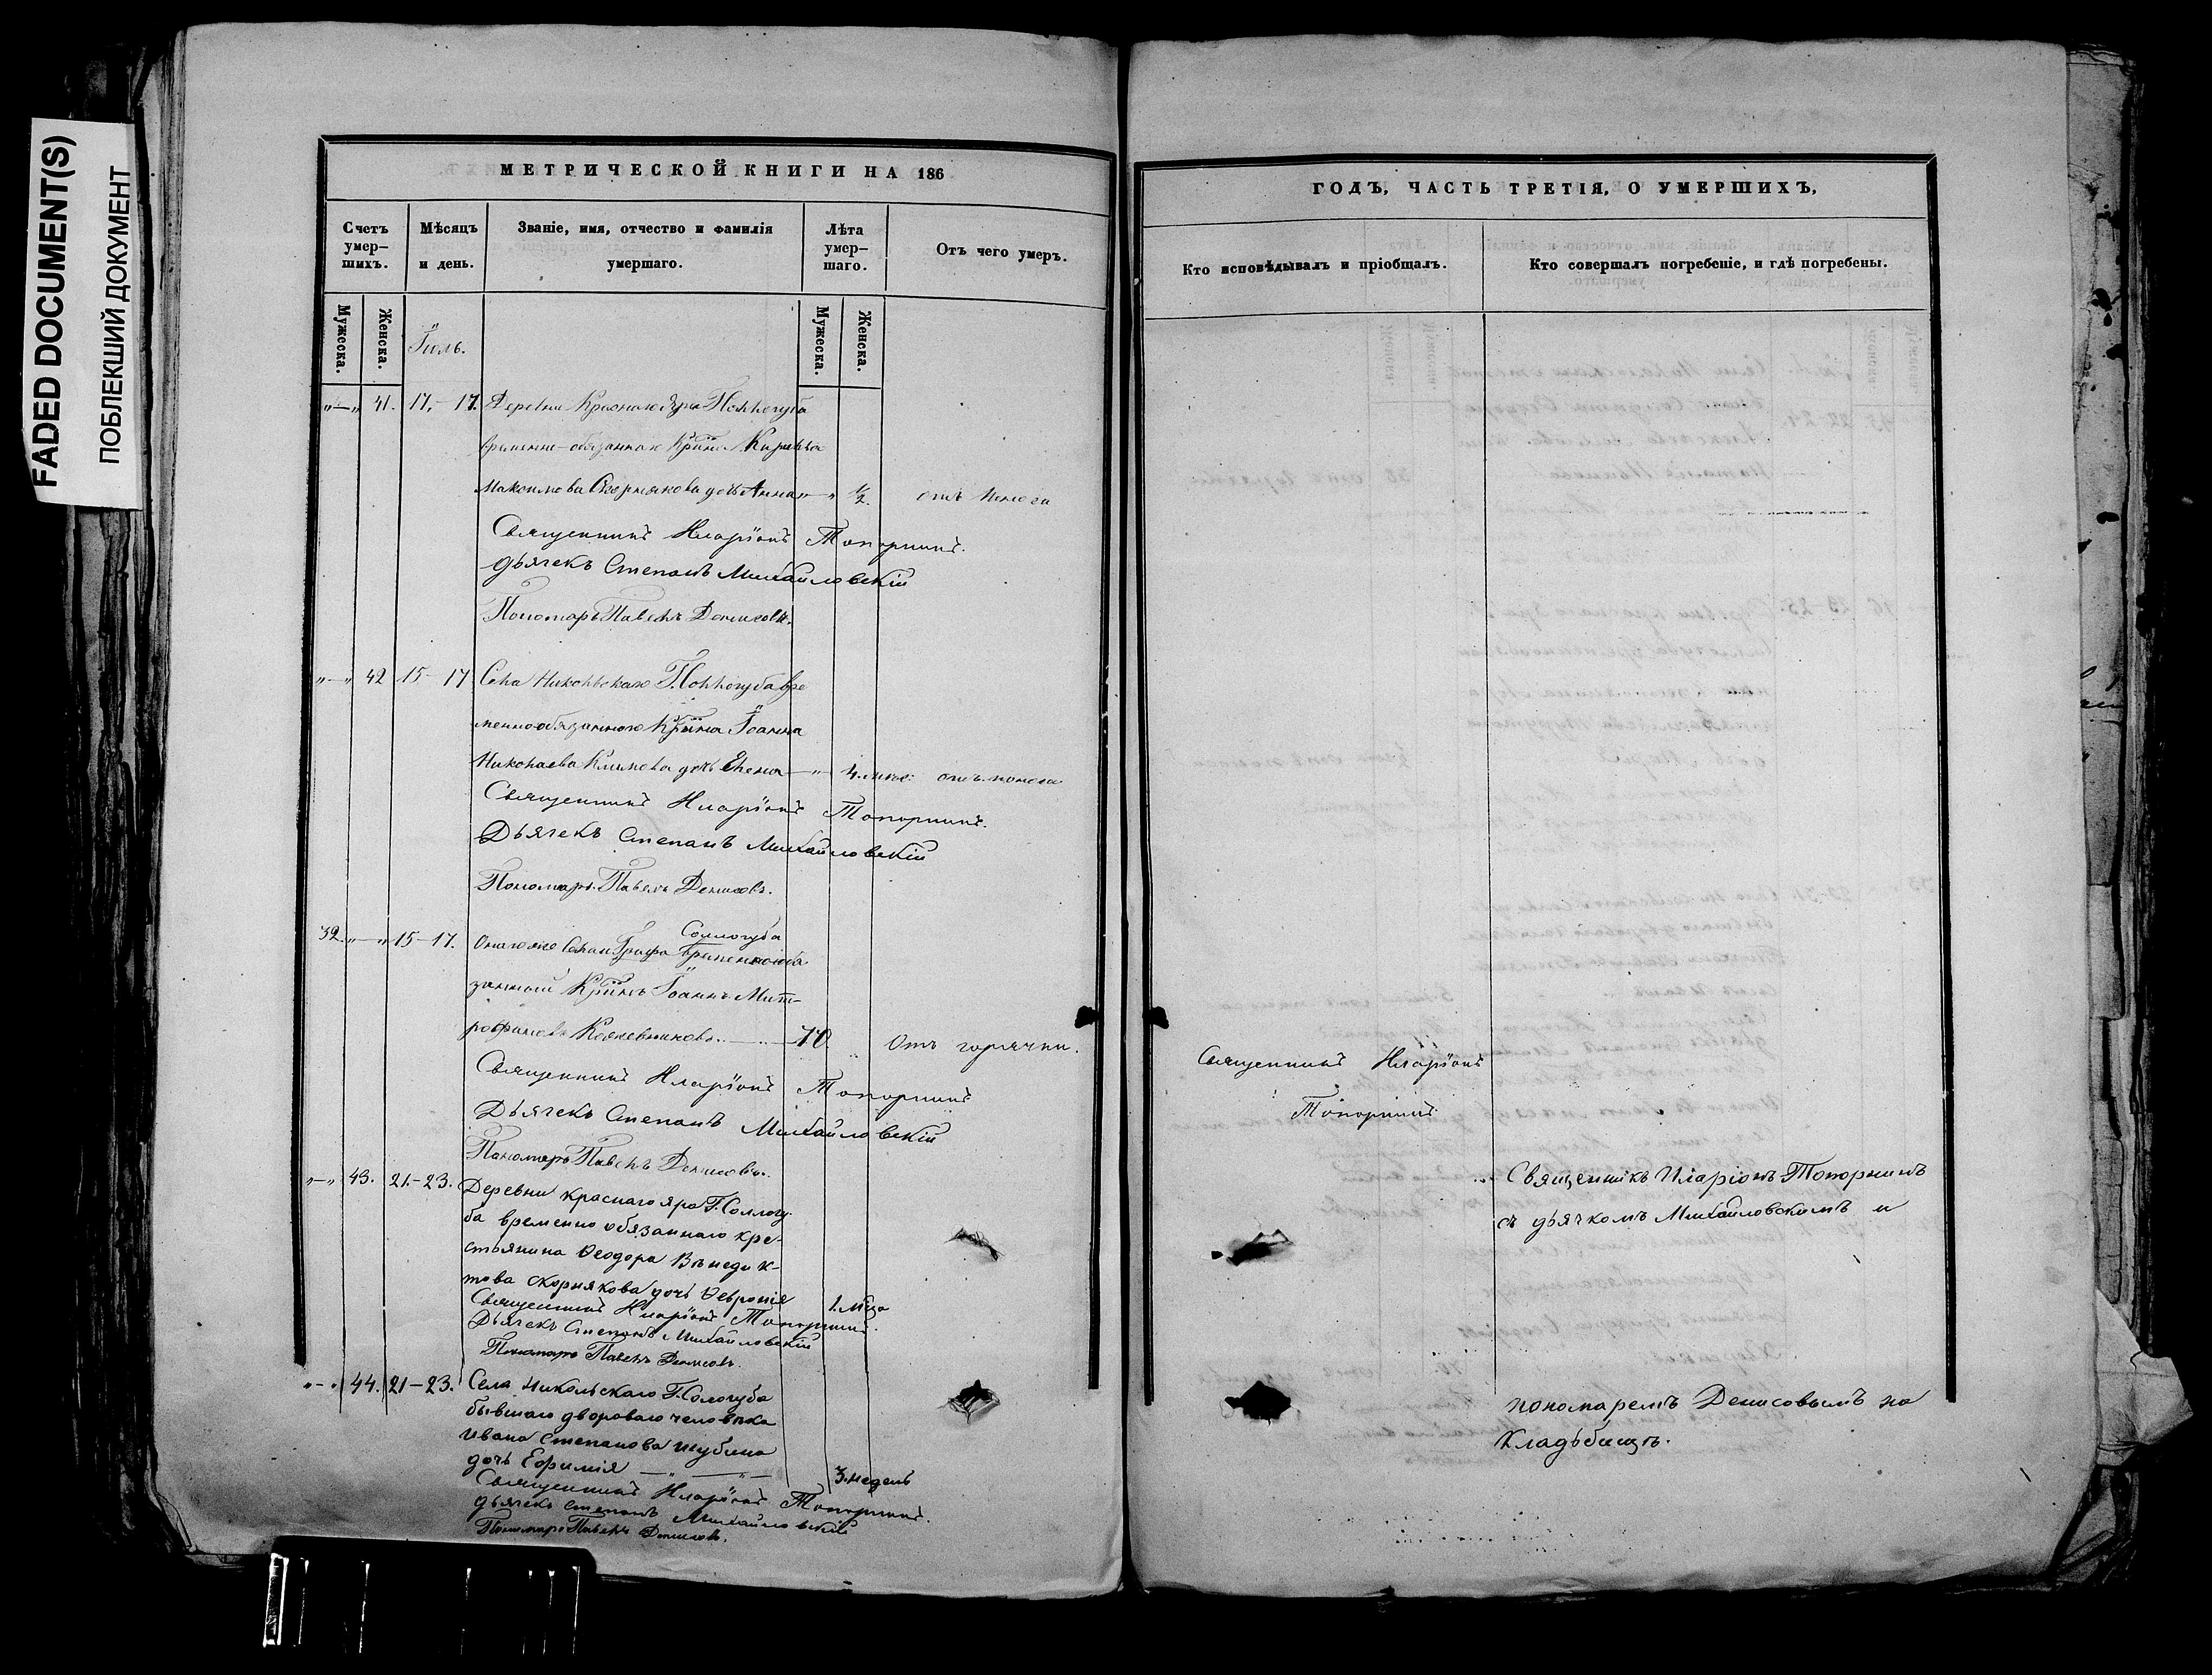 FADED DOCUMENT(S)
ПОБЛЕКШИЙ ДОКУМЕНТ
МЕТРИЧЕСКОЙ КНИГИ НА 186
Счетъ умер-шихъ.
Мѣсяцъ и день.
Званіе, имя, отчество и фамилія умершаго.
Лѣта умер-шаго.
Отъ чего умеръ.
Мужеска.
Женска.
Мужеска.
Женска.
Іюль.
"—" 41. 17.- 17. Деревни Краснаго Яра Г. Соллогуба
временно-обязаннаго Крїина
Максимова Скорнякова дочь Анна "—" 1/2. отъ поноса
Священникъ Иларіонъ Топорнинъ.
дьячекъ Степанъ Михайловскій
Пономарь Павелъ Денисовъ.
"—" 42 15-17 Села Никольскаго Г. Соллогуба вре
менно-обязаннаго Крїина Іоанна
Николаева Климова дочь Елена —"— 4. отъ поноса
Священникъ Иларіонъ Топорнинъ.
Дьячекъ Степанъ Михайловскій
Пономарь Павелъ Денисовъ.
Соллогуба
32. "—" 15-17. Онагоже Села Графа временнообя
занный Крїинъ Іоаннъ Мит-
рофановъ Кожевниковъ. 70. Отъ горячки.
Священникъ Иларіонъ Топорнинъ
Дьячекъ Степанъ Михайловскій
Пономарь Павелъ Денисовъ.
"—" 43. 21.-23. Деревни краснаго яра Г. Соллогу-
ба временно обязаннаго кре-
стьянина Ѳеодора Венедик-
това Скорнякова дочь Ѳевронія 1. мѣса
Священникъ Иларіонъ Топорнинъ.
Дьячекъ Степанъ Михайловскій
Пономарь Павелъ Денисовъ.
"-" 44. 21-23. Села Никольскаго Г. Сологуба
бывшаго двороваго человѣка
Ивана Степанова Шубина
дочь Ефимія —"— —"— 3. недель
Священникъ Иларіонъ Топорнинъ.
дьячекъ Степанъ Михайловскій
Пономарь Павелъ Денисовъ.
ГОДЪ, ЧАСТЬ ТРЕТІЯ, О УМЕРШИХЪ,
Кто исповѣдывалъ и пріобщалъ.
Кто совершалъ погребеніе, и гдѣ погребены.
Священникъ Иларіонъ
Топорнинъ
Священикъ Иларіонъ Топорнинъ
съ дьячкомъ Михайловскимъ и
пономаремъ Денисовымъ на
Кладьбищѣ.